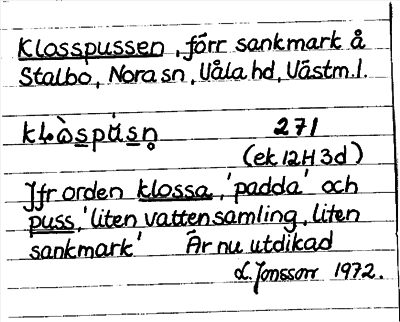 Klosspussen, förr sankmark å
Stalbo, Nora sn, Våla hd, Västm.l.
kɬòspúsn̥ 271
(ek 12H 3d)
Jfr orden klossa, 'padda' och
puss, 'liten vattensamling, liten
sankmark' Är nu utdikad
L. Jonsson 1972.